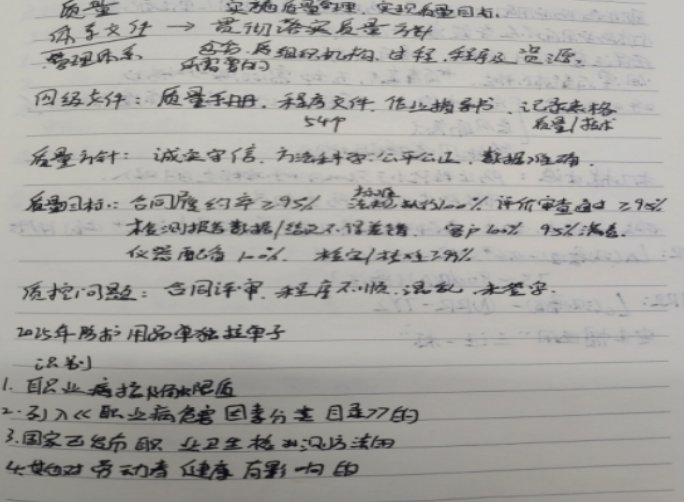 质量 实施质量管理 实现质量目标.
体系文件 → 贯彻落实质量方针
管理体系 所需要的组织机构、过程、程序及资源。
四级文件: 质量手册、程序文件、作业指导书、记录表格
54个 质量/技术
质量方针: 诚实守信、方法科学、公平公正、数据准确.
质量目标: 合同履约率≥95% 100% 评价审查通过≥95%
检测报告数据/结论不得差错、客户100% 95%满意.
仪器配备100%. 检定/校准≥99%
质控问题: 合同评审、程序不顺、混乱、未签字.
2025年防护用品单独拉单子
识别
1. 职业病接触限值
2. 列入《职业病危害因素分类目录》的
3.国家已发布职业卫生检测方法的
4.其他对劳动者健康有影响的